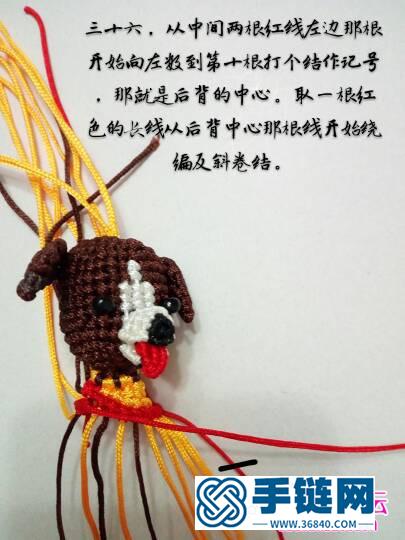 三十六，从中间两根红线左边那根
开始向左数到第十根打个结作记号
，那就是后背的中心。取一根红
色的长线从后背中心那根线开始绕
编反斜卷结。
手链网
www.36840.com